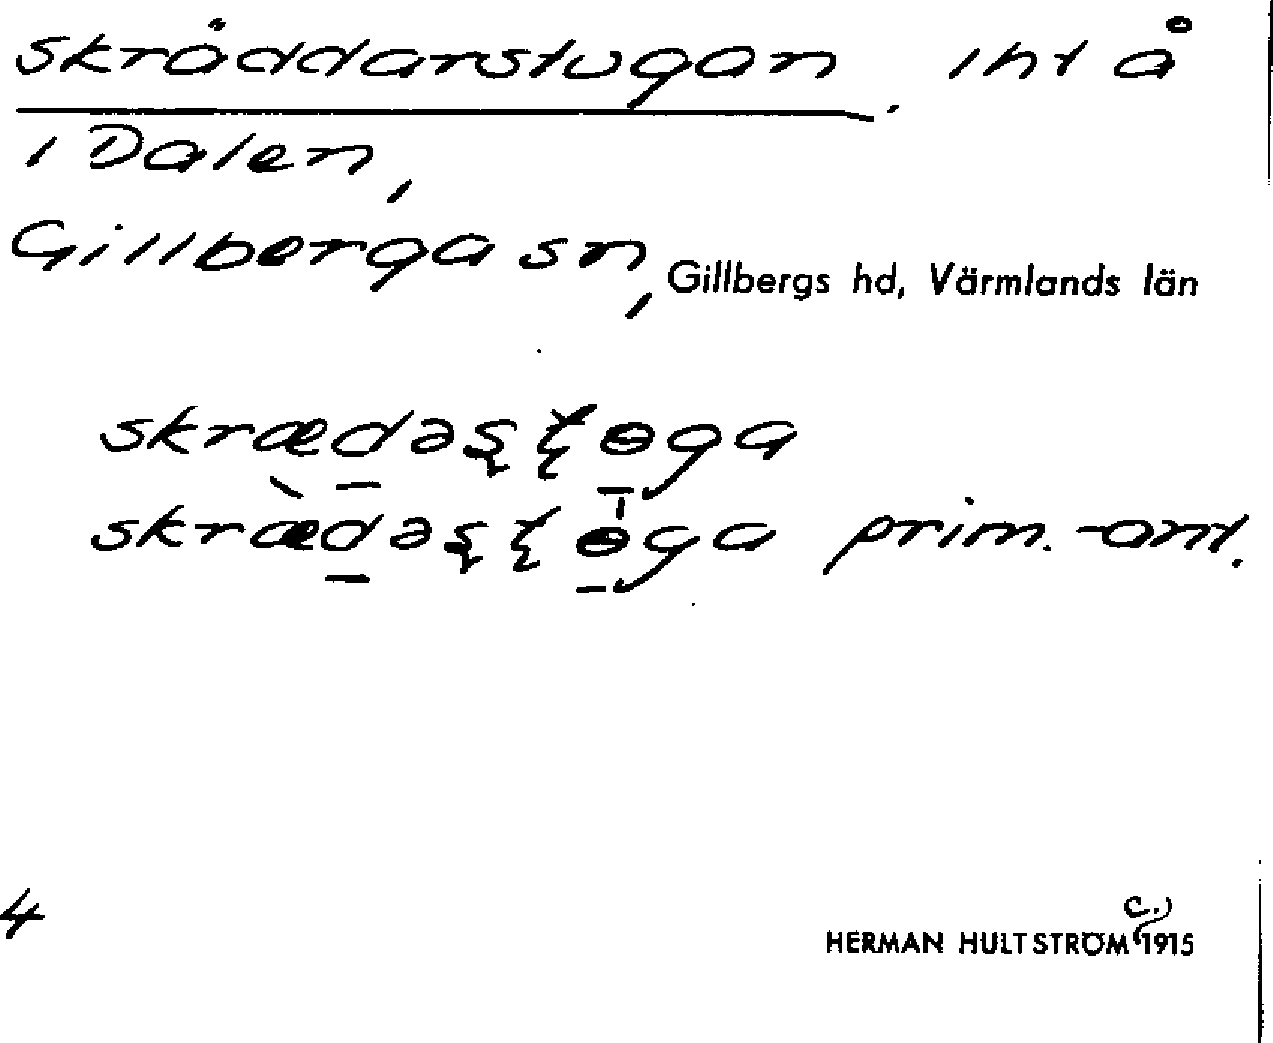 Skräddarstugan. iht å
i Dalen,
Gillberga sn, Gillbergs hd, Värmlands län
skræ̀d̠əʂʈɵ̠ga
skræd̠əʂʈɵ̠ga prim.-ant.
4
c.)
HERMAN HULTSTRÖM 1915